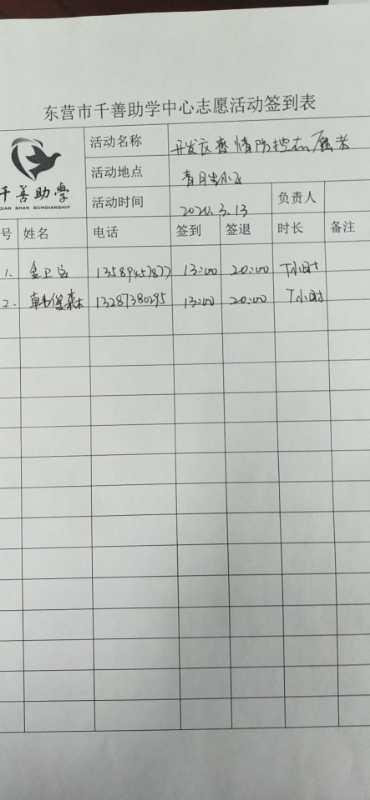 东营市千善助学中心志愿活动签到表
千善助学
QIAN SHAN SCHOLARSHIP
活动名称 开发区疫情防控志愿者
活动地点
活动时间 2022.3.13 负责人
号 姓名 电话 签到 签退 时长 备注
1. 13589457877 13:00 20:00 7小时
2. 韩俊森 13287380295 13:00 20:00 7小时